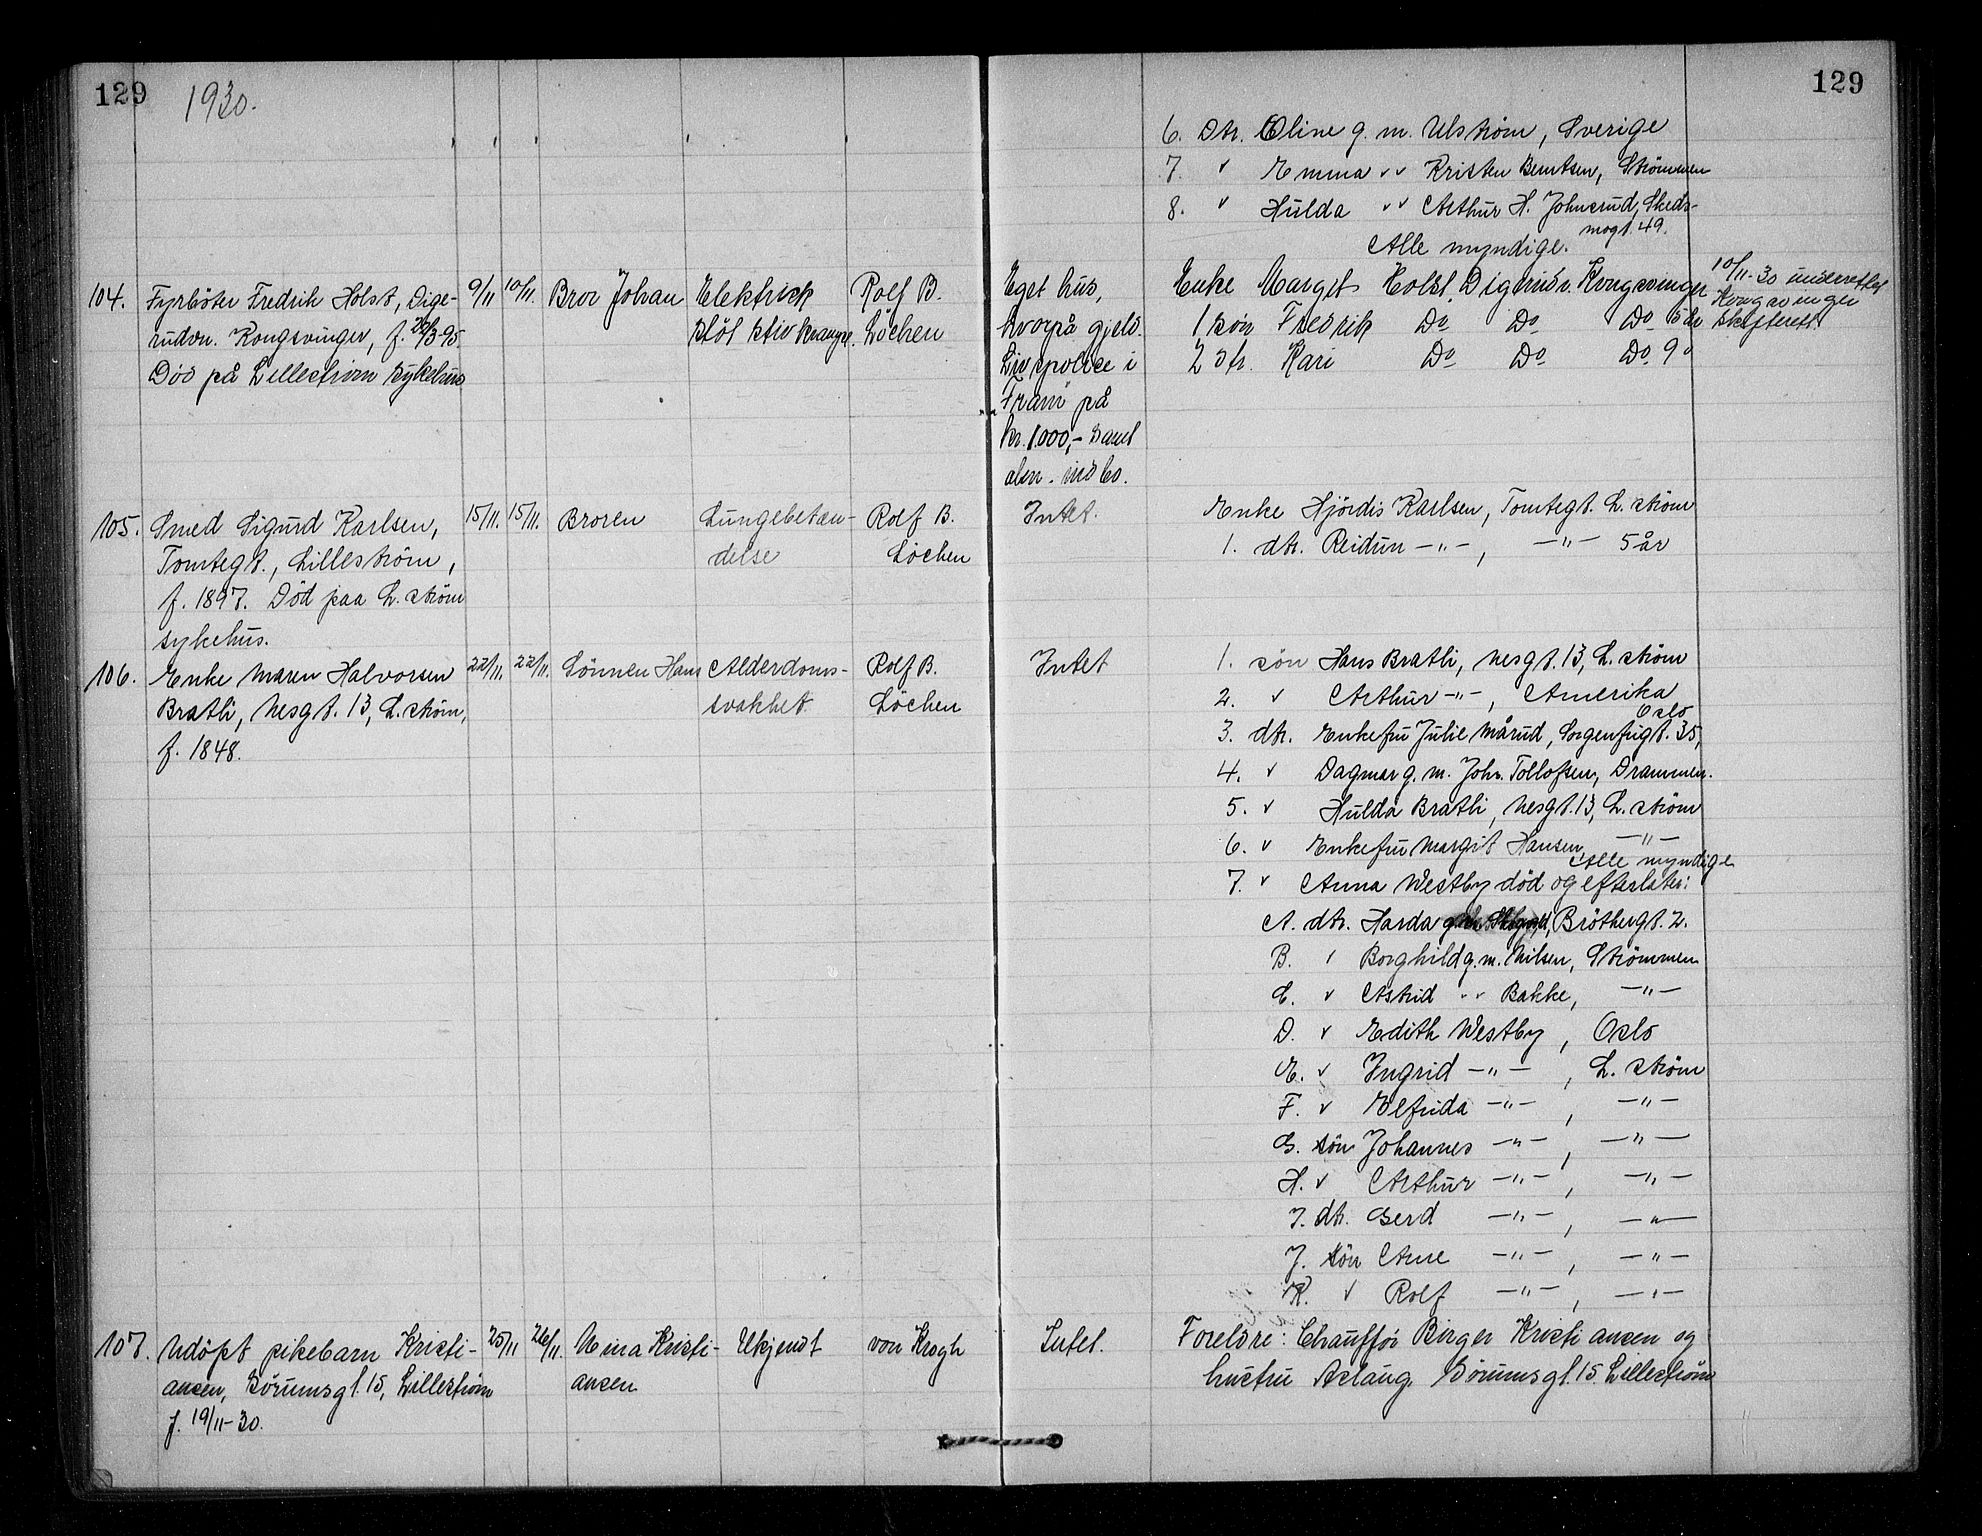 129
1930.
129
6. Dtr. Oline g. m. Ulstrøm, Sverige
7. " Emma " " Kristen Berntsen, Strømmen
8. " Hulda " " Arthur H. Johnsrud, Skeds-
mogt. 49.
Alle myndige.
104. Fyrböter Fredrik Holst, Dige-
rudvn. Kongsvinger, f. 26/3 95
Död på Lillestrøm sykehus
9/11 10/11. Bror Johan
Elektrisk
stöt
Rolf B.
Löchen
Eget hus,
hvorpå gjeld.
Livspolice i
"Fram" på
kr. 1000,- samt
alm. indbo.
Enke Margit Holst, Digerudv. Kongsvinger
1 sön Fredrik Do Do Do 6 år
2 dtr. Kari Do Do Do 9 "
10/11-30 underettet
Kongsvinger
skifterett
105. Smed Sigurd Karlsen,
Tomtegt., Lillestrøm,
f. 1897. Död paa L. strøm
sykehus.
15/11. 15/11. Broren
Lungebetæn-
delse
Rolf B.
Löchen
Intet.
Enke Hjördis Karlsen, Tomtegt. L. strøm
1. dtr. Reidun -"-, -"- 5 år
106. Enke Maren Halvorsen
Bratli, Nesgt. 13, L. strøm,
f. 1848.
22/11. 22/11. Sönnen Hans
Alderdoms-
svakhet
Rolf B.
Löchen
Intet
1. sön Hans Bratli, Nesgt. 13, L. strøm
2. " Arthur -"-, Amerika
Oslo
3. dtr. Enkefru Julie Mårud, Sorgenfrigt. 35,
4. " Dagmar g. m. Joh. Tollofsen, Drammen.
5. " Hulda Bratli, Nesgt. 13, L. strøm
6. " Enkefru Margit Hansen -"-
Alle myndige
7. " Anna Westby död og efterlater:
A. dtr. Harda Bröthergt. 2.
B. " Borghild g. m. Nilsen, Strømmen
C. " Astrid " " Bakke, -"-
D. " Edith Westby, Oslo
E. " Ingrid -"-, L. strøm
F. " Elfrida -"-, -"-
G. sön Johannes -"-, -"-
H. " Arthur -"-, -"-
I. dtr. Gerd -"-, -"-
J. sön Arne -"-, -"-
K. " Rolf -"-, -"-
107. Udöpt pikebarn Kristi-
ansen, Sörumsgt. 15, Lillestrøm
f. 19/11-30.
25/11 26/11. Nina Kristi-
ansen
Ukjendt
von Krogh
Intet.
Foreldre: Chauffør Birger Kristiansen og
hustru Aslaug Sörumsgt. 15 Lillestrøm